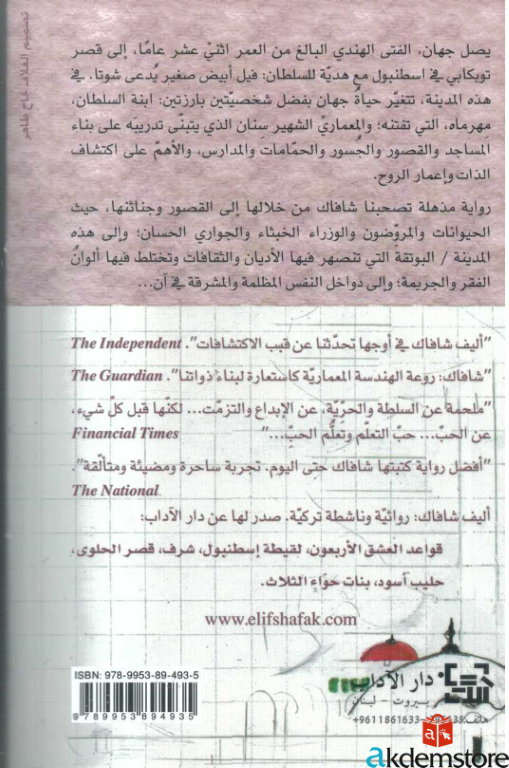 يصل جهان، الفتى الهندي البالغ من العمر اثنيْ عشر عامًا، إلى قصر
توبكابي في اسطنبول مع هديّة للسلطان: فيل أبيض صغير يُدعى شوتا. في
هذه المدينة، تتغيّر حياةُ جهان بفضل شخصيّتين بارزتين: ابنة السلطان،
مهرماه، التي تفتنه؛ والمعماريّ الشهير سنان الذي يتبنّى تدريبَه على بناء
المساجد والقصور والجُسور والحمّامات والمدارس، والأهمّ على اكتشاف
الذات وإعمار الروح.
رواية مذهلة تصحبنا شافاك من خلالها إلى القصور وجنائنها، حيث
الحيوانات والمروّضون والوزراء الخبثاء والجواري الحسان؛ وإلى هذه
المدينة / البوتقة التي تنصهر فيها الأديان والثقافات وتختلط فيها ألوانُ
الفقر والجريمة؛ وإلى دواخل النفس المظلمة والمشرقة في آن...
"أليف شافاك في أوجها تحدّثنا عن قبب الاكتشافات". The Independent
"شافاك: روعة الهندسة المعماريّة كاستعارة لبناء ذواتنا". The Guardian
"ملحمة عن السلطة والحرّيّة، عن الإبداع والتزمّت... لكنّها قبل كلّ شيء،
عن الحبّ... حبّ التعلّم وتَعلُّم الحبّ..." Financial Times
"أفضل رواية كتبتها شافاك حتى اليوم. تجربة ساحرة ومضيئة ومتألّقة".
The National
أليف شافاك: روائيّة وناشطة تركيّة. صدر لها عن دار الآداب:
قواعد العشق الأربعون، لقيطة إسطنبول، شرف، قصر الحلوى،
حليب أسود، بنات حوّاء الثلاث.
www.elifshafak.com
ISBN: 978-9953-89-493-5
9 789953 894935
دار الآداب
بيروت - لبنان
هاتف:
+9611861633
akdemstore
تصميم الغلاف: نجاح طاهر